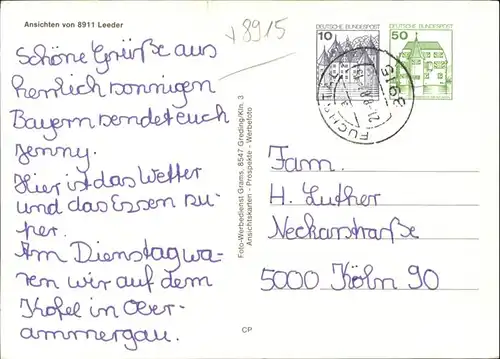 Ansichten von 8911 Leeder
8915
Schöne Grüße aus
herrlich sonnigen
Bayern sendet euch
Jenny.
Hier ist das Wetter
und das Essen su-
per.
Am Dienstag wa-
ren wir auf dem
Kofel in Ober-
ammergau.
Foto-Werbedienst Grams, 8547 Greding-Kln. 3
Ansichtskarten - Prospekte - Werbefoto
CP
10
DEUTSCHE BUNDESPOST
50
DEUTSCHE BUNDESPOST
8915
Fam.
H. Luther
Neckarstraße
5000 Köln 90